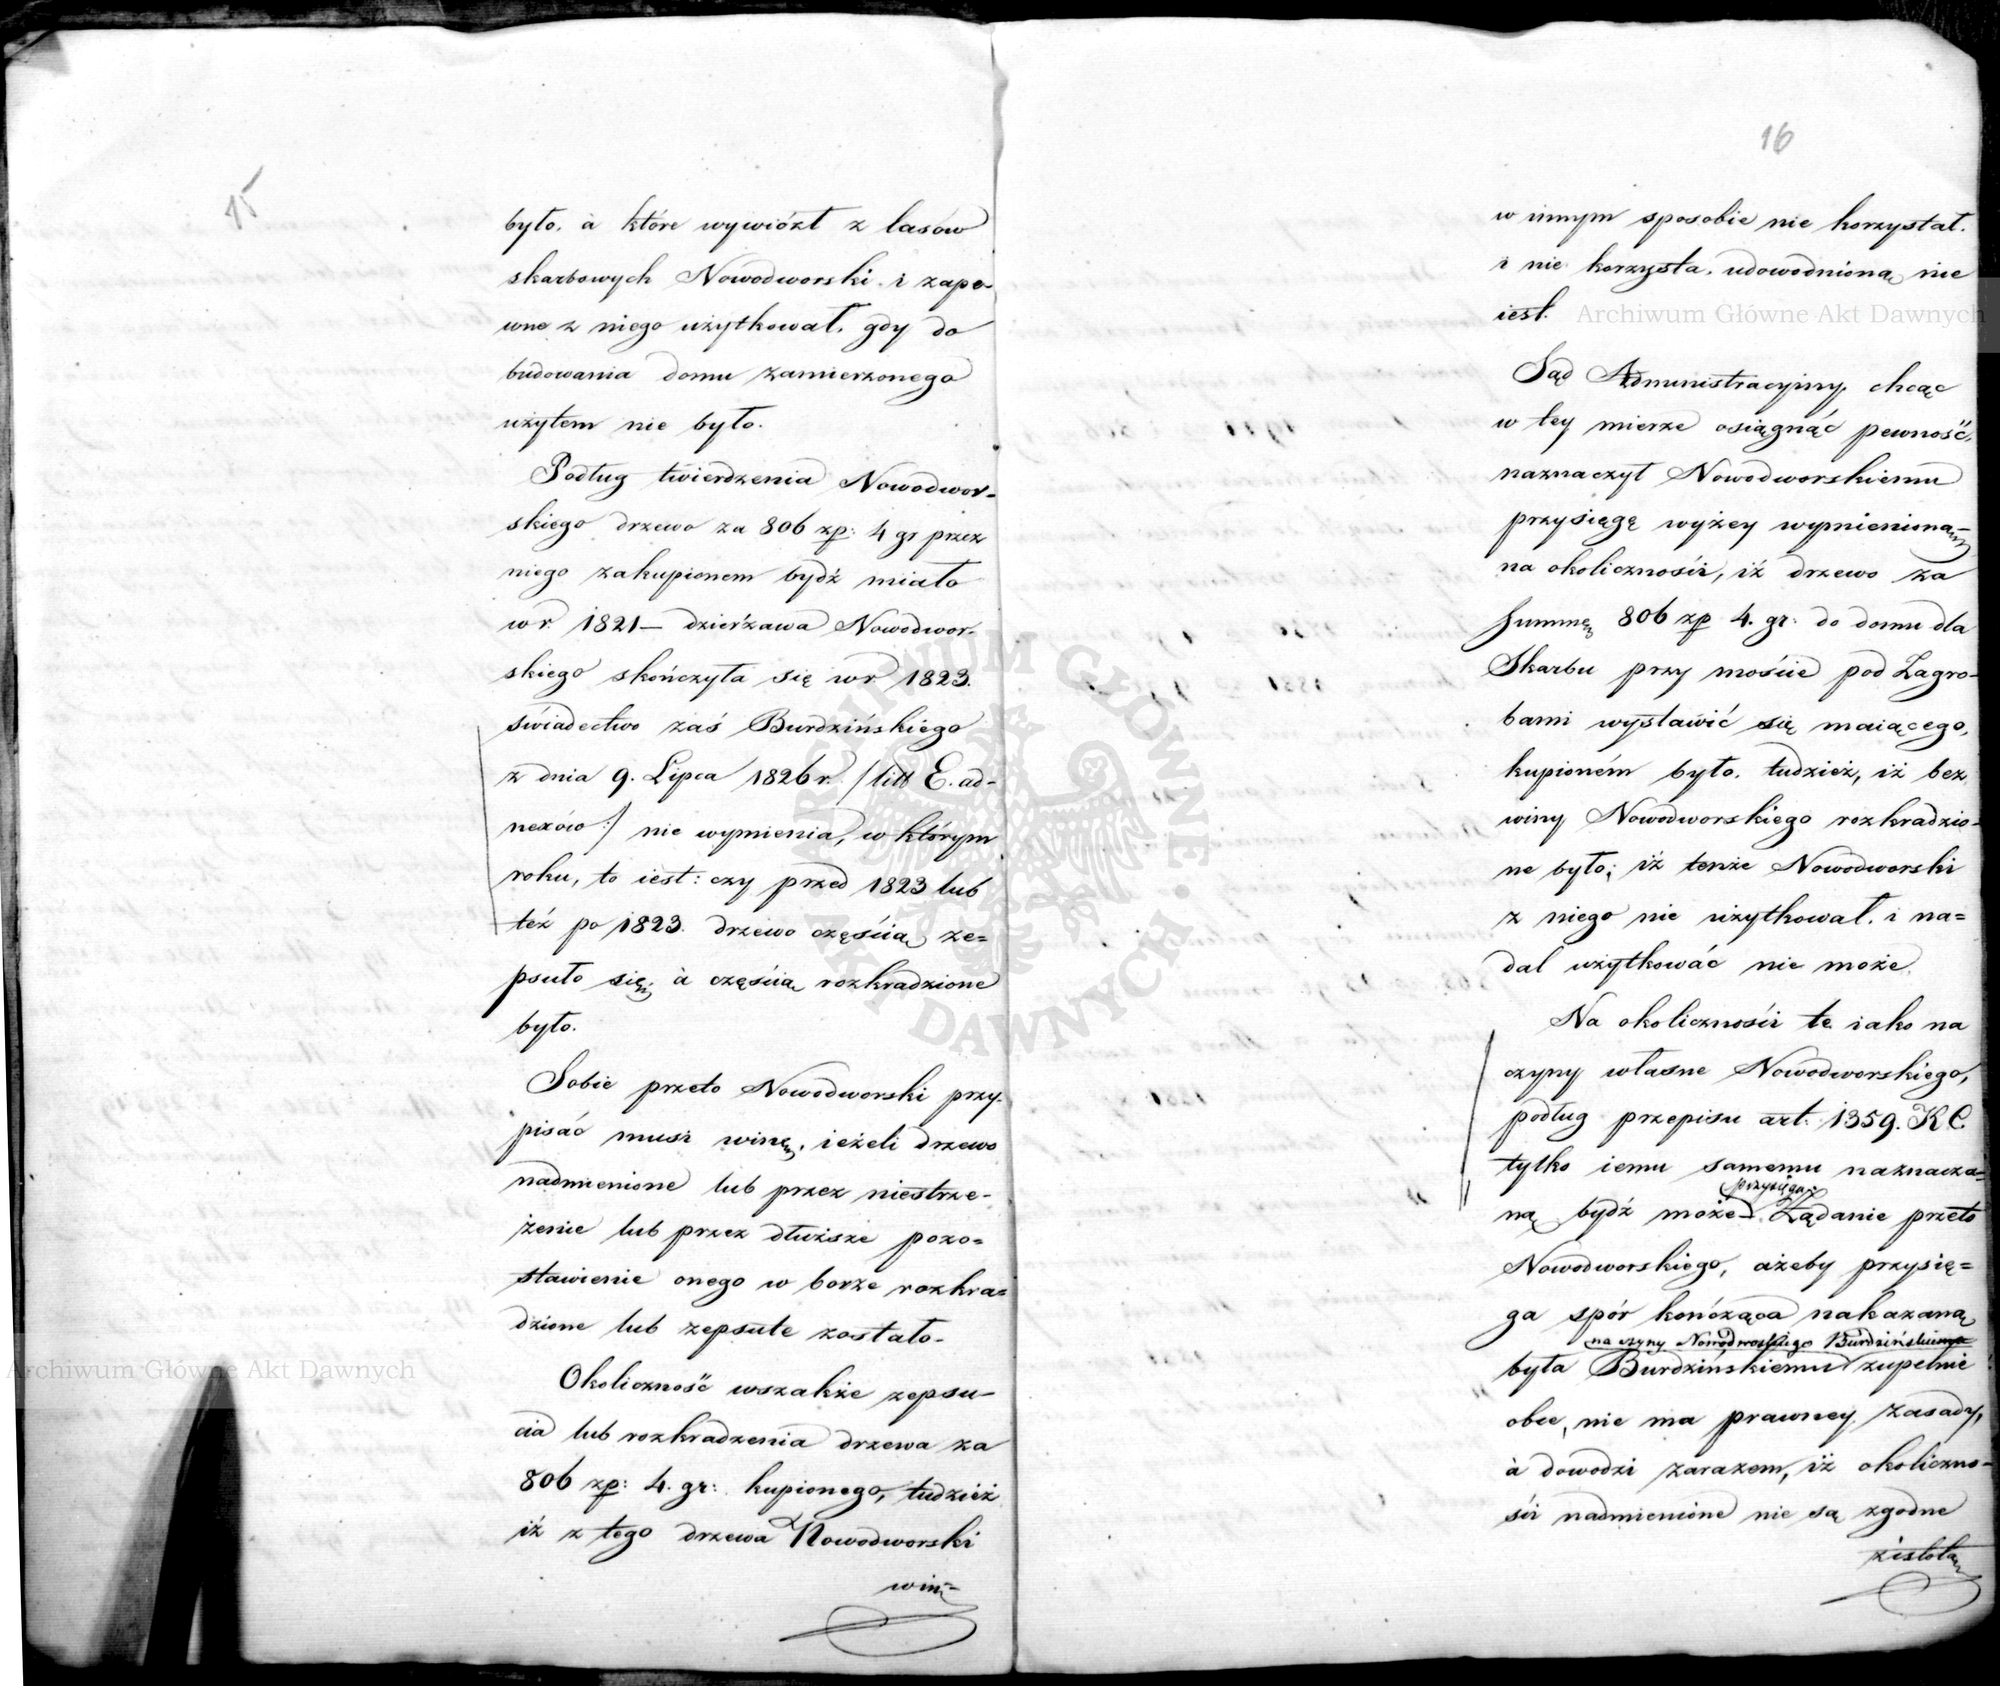 15
było. à które wywiózł z lasów
skarbowych Nowodworski. i zape-
wne z niego użytkował, gdy do
budowania domu zamierzonego
użytem nie było.
Podług twierdzenia Nowodwor-
skiego drzewo za 806 zp: 4 gr przez
niego zakupionem bydź miało
w r. 1821 – dzierżawa Nowodwor-
skiego skończyła się w r 1823.
świadectwo zaś Burdzińskiego
z dnia 9. Lipca 1826 r. /litt E. ad-
nexów:/ nie wymienia, w którym
roku, to iest: czy przed 1823 lub
też po 1823. drzewo częścią ze=
psuło się, à częścią rozkradzione
było.
Sobie przeto Nowodworski przy-
pisać musi winę, ieżeli drzewo
nadmienione lub przez niestrze-
żenie lub przez dłuższe pozo=
stawienie onego w borze rozkra=
dzione lub zepsute zostało.
Okoliczność wszakże zepsu-
cia lub rozkradzenia drzewa za
806 zp: 4. gr: kupionego, tudzież
iż z tego drzewa Nowodworski
w in=
16
w innym sposobie nie korzystał.
i nie korzysta, udowodnioną nie
iest.
Sąd Administracyiny, chcąc
w tey mierze osiągnąć pewność,
naznaczył Nowodworskiemu
przysięgę wyżey wymienioną
na okoliczności, iż drzewo za
Summę 806 zp 4. gr: do domu dla
Skarbu przy moście pod Zagro-
bami wystawić się maiącego,
kupioném było, tudzież, iż bez
winy Nowodworskiego rozkradzio-
ne było; iż tenże Nowodworski
z niego nie użytkował. i na=
dal użytkować nie może.
Na okoliczności te iako na
czyny własne Nowodworskiego,
podług przepisu art: 1359. K C
tylko iemu samemu naznacza=
przysięga
ną bydź może. Żądanie przeto
Nowodworskiego, ażeby przysię=
ga spór kończąca nakazaną
na czyny Nowodworskiego Burdzińskiemu
była Burdzińskiemu zupełnie
obce, nie ma prawney zasady,
à dowodzi zarazem, iż okoliczno-
ści nadmienione nie są zgodne
z istotą
Archiwum Główne Akt Dawnych
Archiwum Główne Akt Dawnych
ARCHIWUM GŁÓWNE AKT DAWNYCH